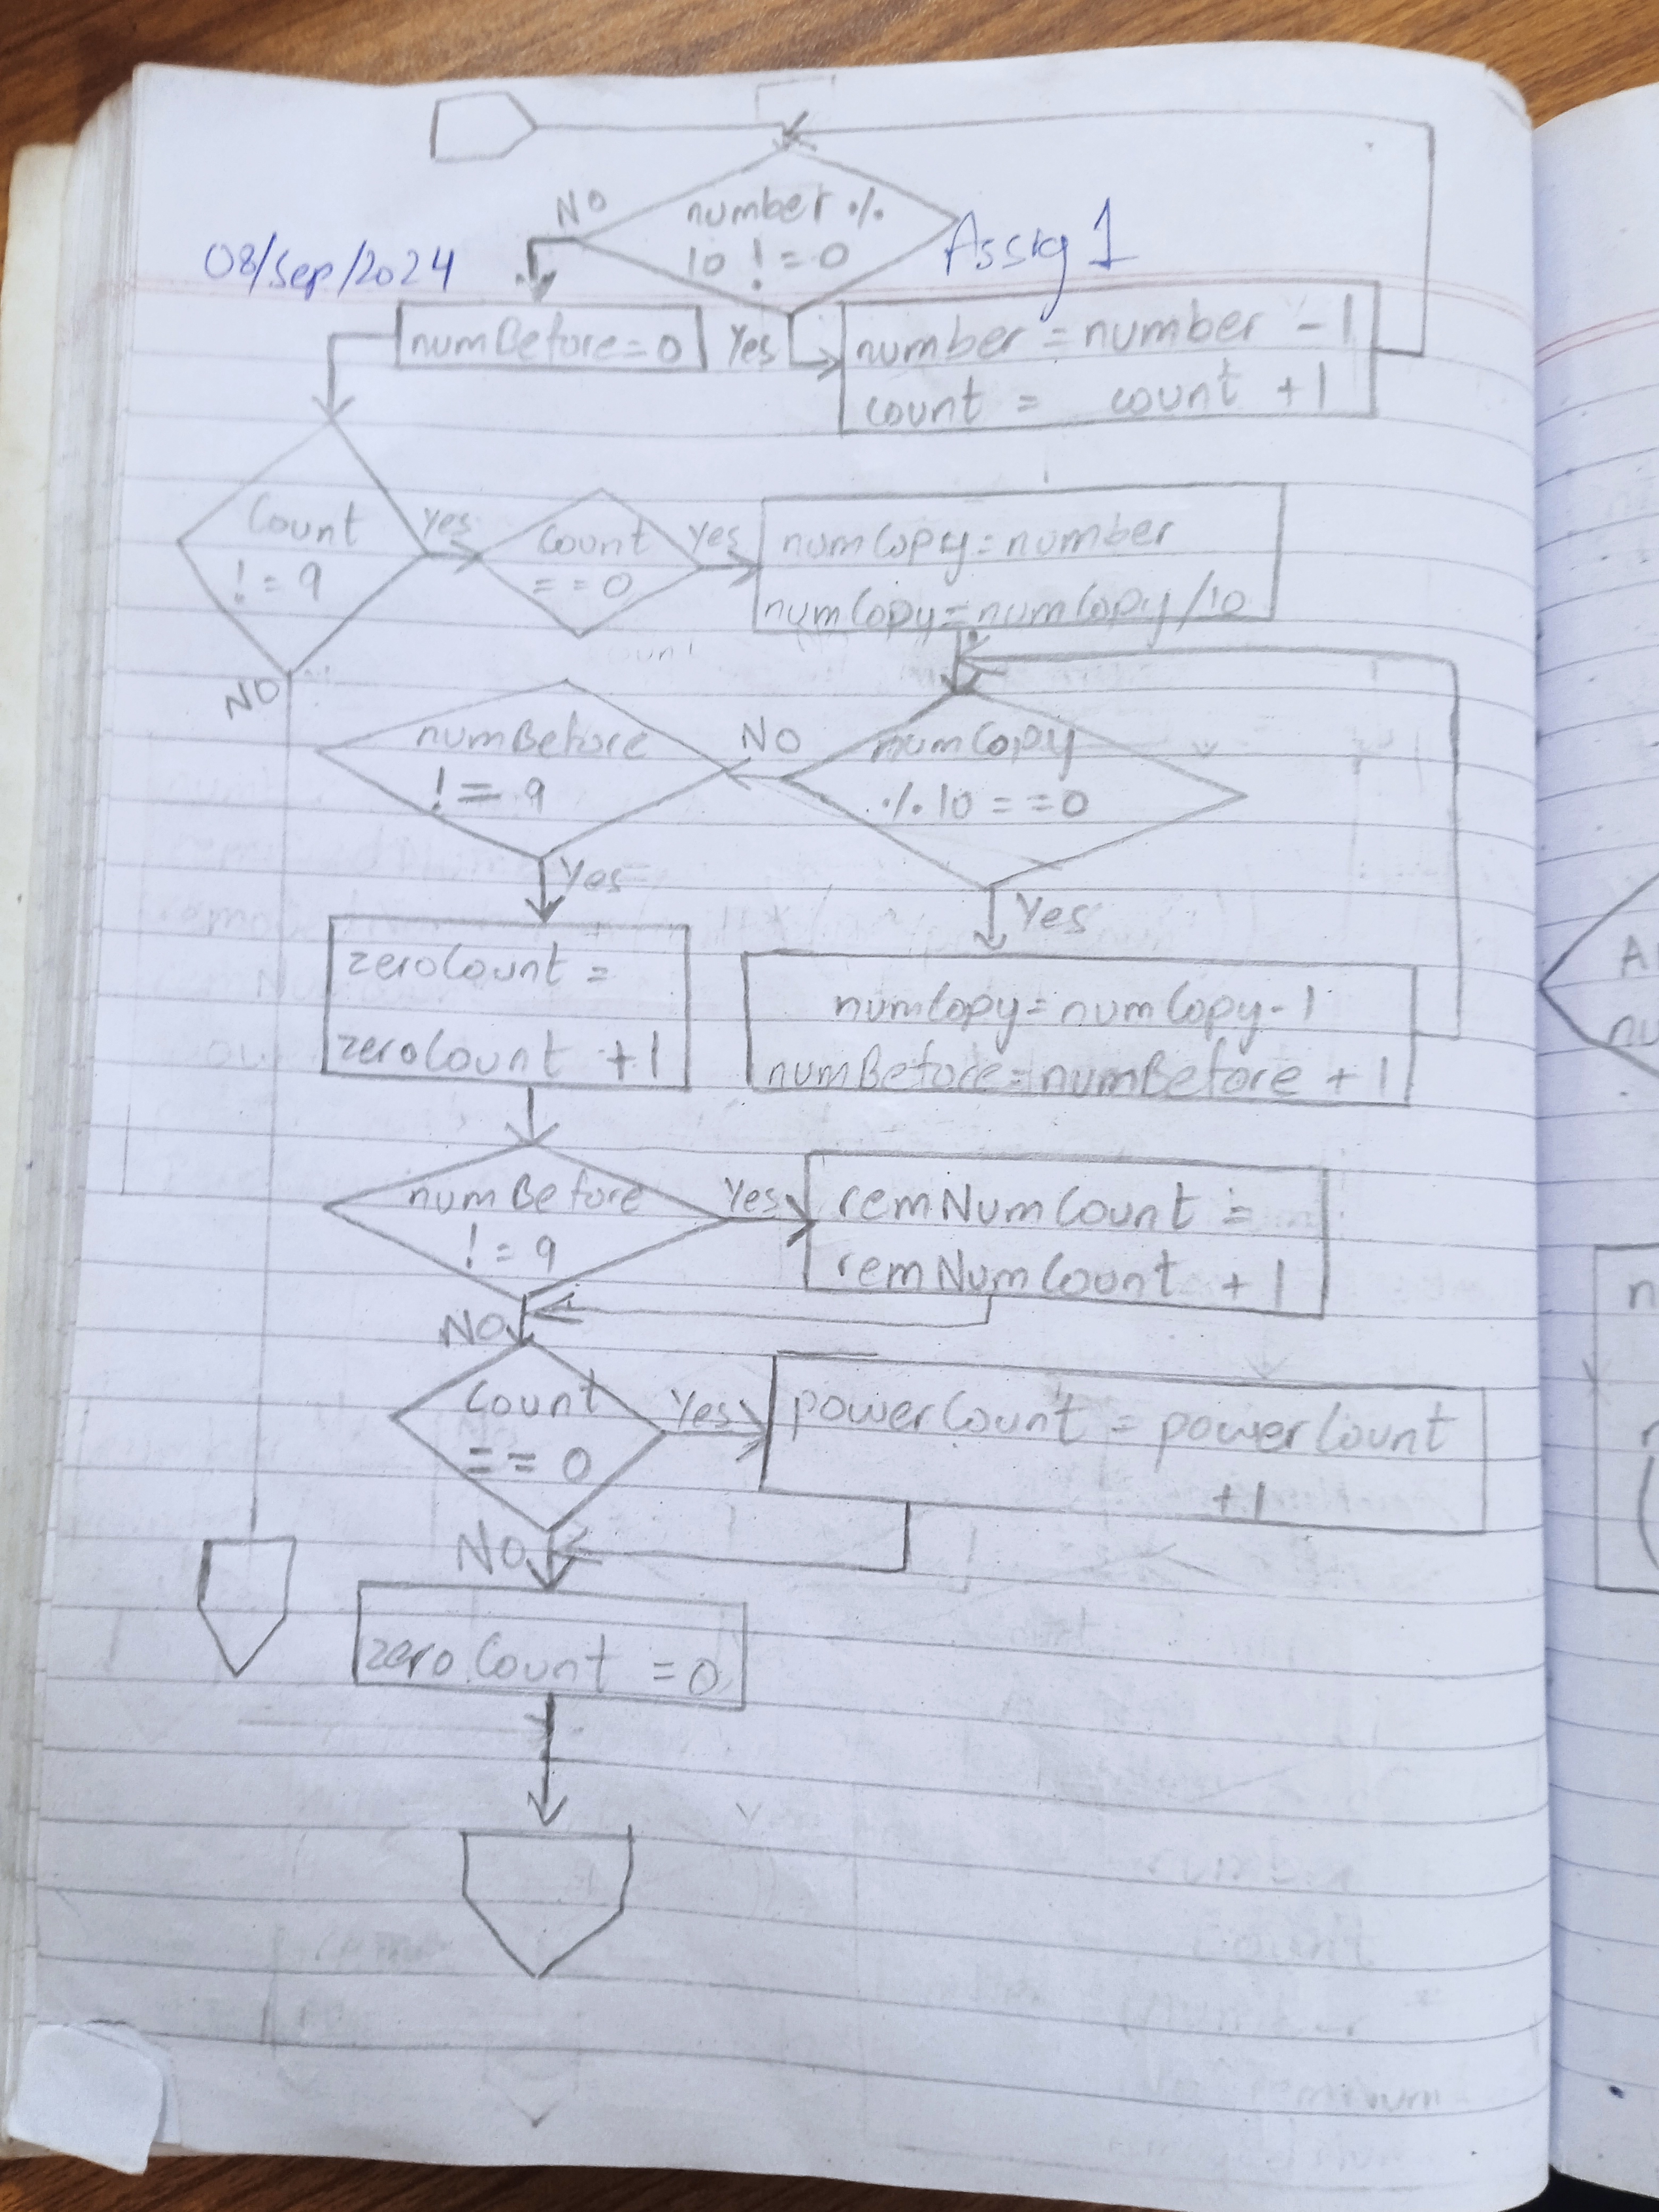 NO
number %
10 != 0
08/Sep/2024
Assig 1
numBefore=0
Yes
number = number - 1
count = count + 1
Count
!= 9
Yes
Count
== 0
Yes
numCopy=number
numCopy=numCopy/10
NO
numBefore
!= 9
NO
numCopy
% 10 == 0
Yes
Yes
zeroCount =
zeroCount + 1
numCopy=numCopy-1
numBefore=numBefore + 1
numBefore
!= 9
Yes
remNumCount =
remNumCount + 1
NO
Count
== 0
Yes
powerCount = powerCount
+1
NO
zeroCount = 0